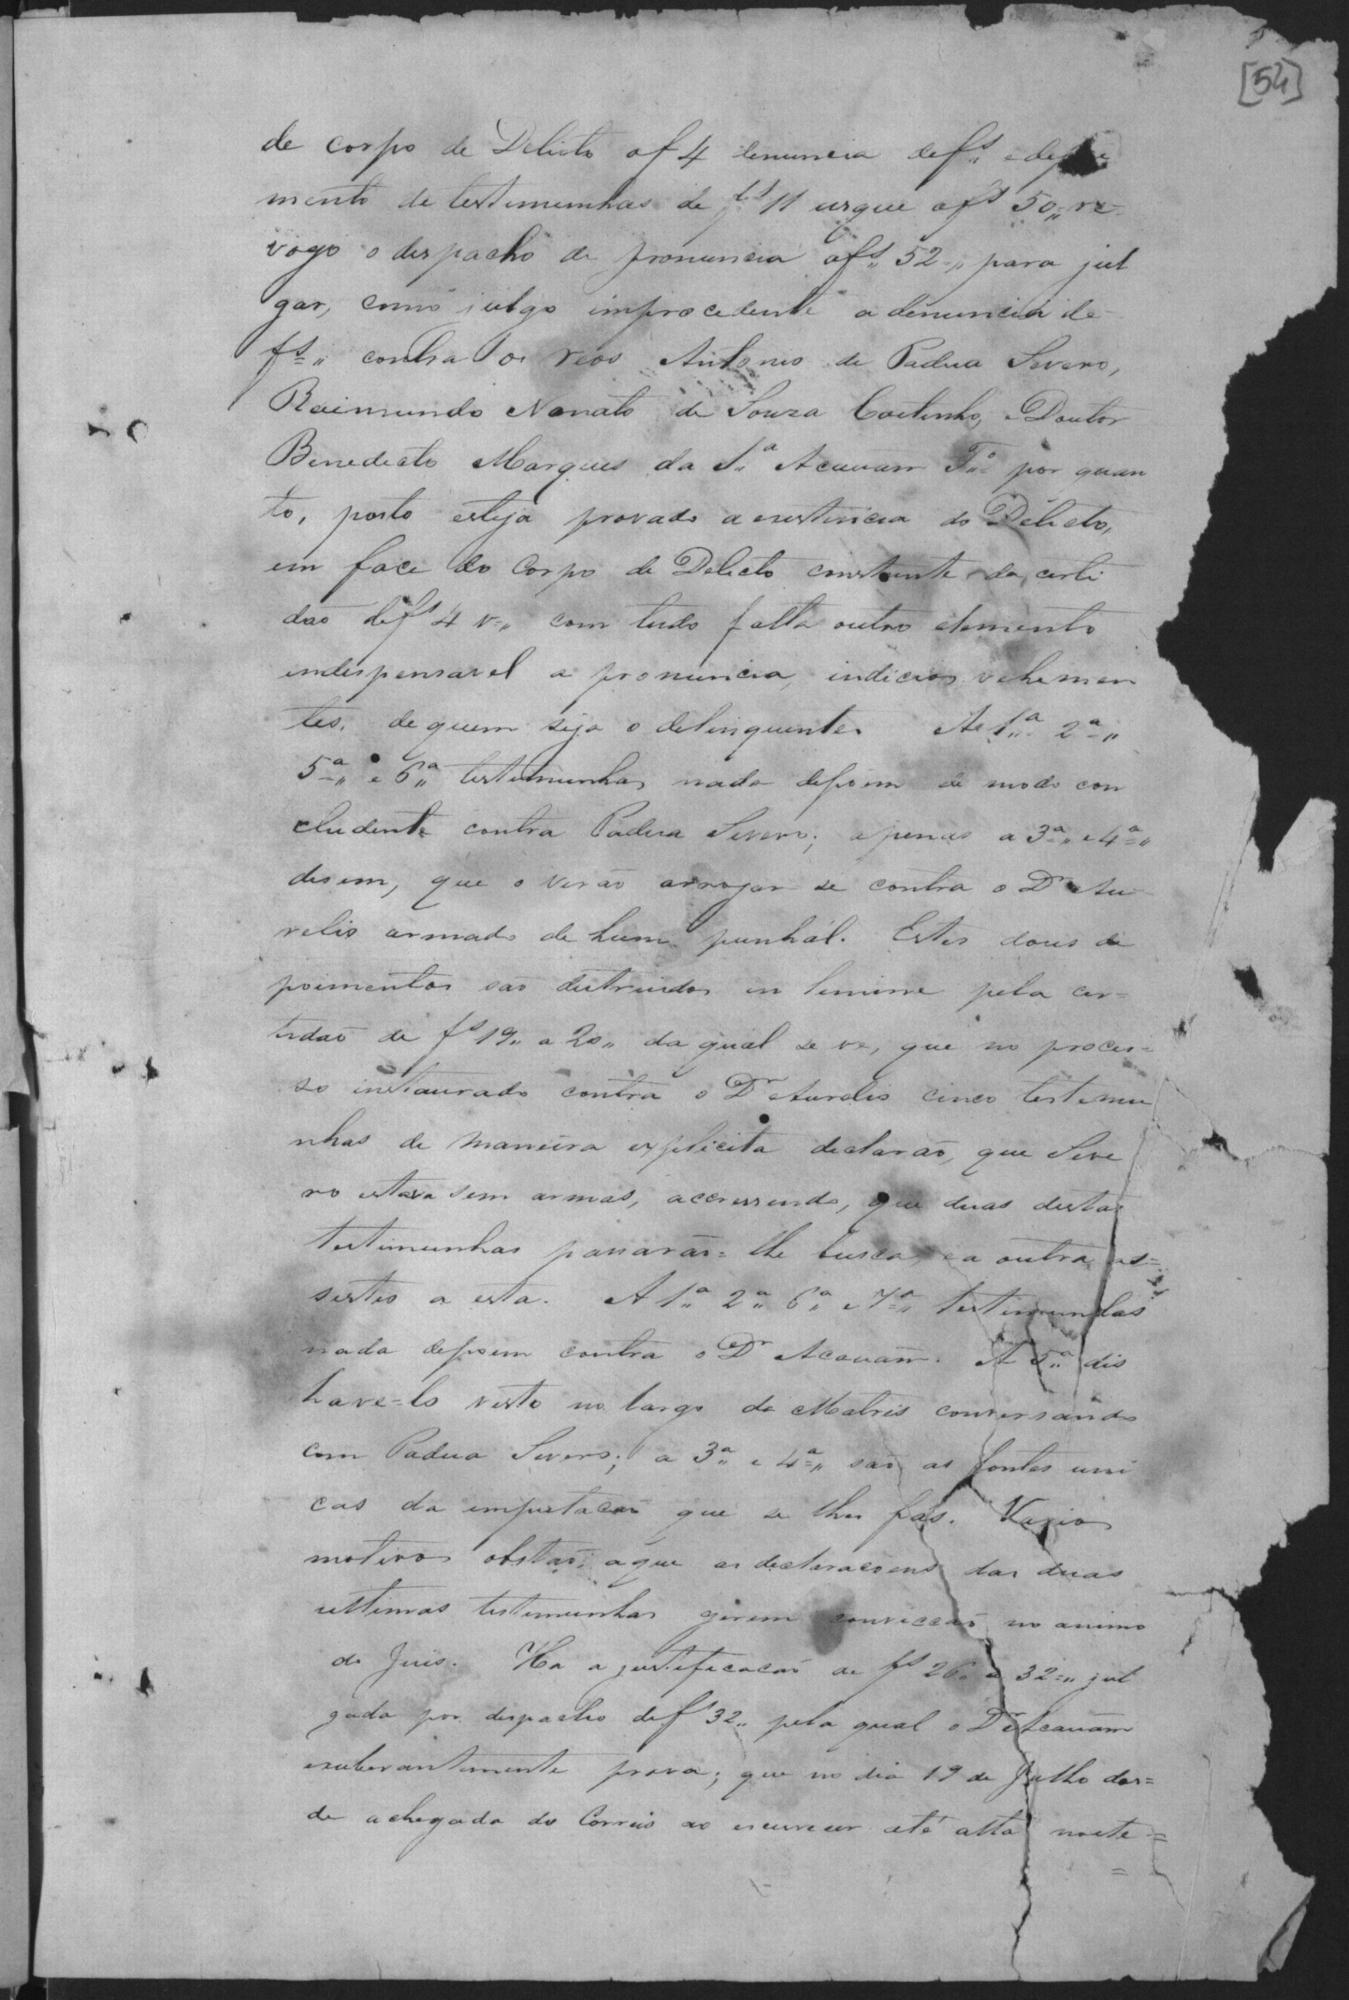 [54]
de corpo de Delicto af 4 denuncia defs. e depoi
mento de testemunhas de fs 11 usque afs 50,, re-
vogo o despacho de pronuncia afs. 52,, para jul
gar, como julgo improcedente a denuncia de
fs,, contra os reos Antonio de Padua Severo,
Raimundo Nonato de Souza Coitinho, e Doutor
Benedicto Marques da S.ª Acauam F.º por quan
to, posto esteja provado a existencia do Delicto,
em face do Corpo de Delicto constante da certi
dao defs 4 v,, com tudo falta outro elemento
indispensavel a pronuncia, indicios vehemen
tes, de quem seja o delinquente. As 1.ª 2.ª
5.ª e 6.ª testemunhas nada depoem de modo con
cludente contra Padua Severo; apenas a 3.ª e 4.ª
disem, que o virão arrojar se contra o Dr Au-
relio armado de hum punhal. Estes dous de
poimentos são distruidos in limine pela cer-
tidaõ de fs 19,, a 20,, da qual se ve, que no proces-
so instaurado contra o Dr Aurelio cinco testemu
nhas de maneira explicita declarão, que Seve
ro estava sem armas, accressendo, que duas destas
testimunhas passarão-lhe busca, e a outra as-
sestio a esta. A 1.ª 2.ª 6.ª e 7.ª testimunhas
nada depoem contra o Dr Acauam. A 5.ª dis
have-lo visto no largo da Matris conversando
com Padua Severo; a 3.ª e 4.ª são as fontes uni
cas da imputacaõ que se lhes fás. Varios
motivos obstaõ, aque as declaracoens das duas
ultimas testimunhas gerem conviccaõ no animo
do Juis. Ha a justificacaõ de fs 26 a 32,, jul
gada por despacho defs 32,, pela qual o Dr Acauam
exuberantemente prova; que no dia 19 de Julho des=
de a chegada do Correio ao escurecer até alta noite=